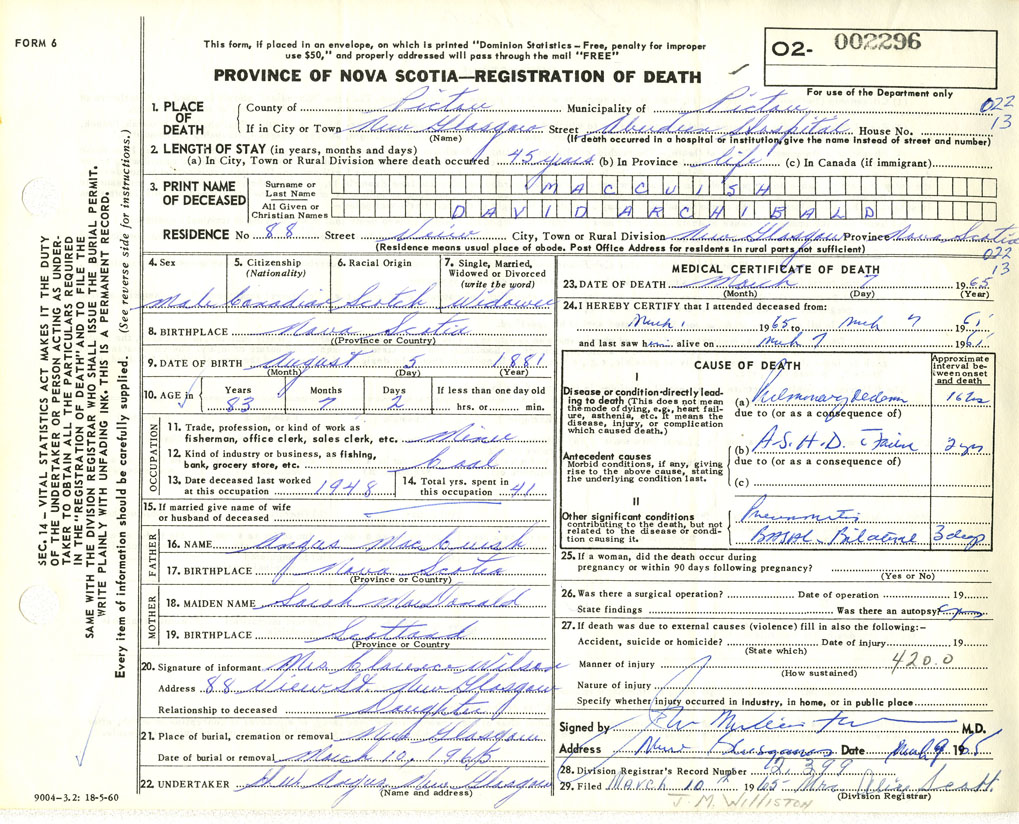 FORM 6
This form, if placed in an envelope, on which is printed "Dominion Statistics – Free, penalty for improper
use $50," and properly addressed will pass through the mail "FREE"
PROVINCE OF NOVA SCOTIA—REGISTRATION OF DEATH
O2- 002296
For use of the Department only
022
13
1. PLACE OF DEATH
County of Pictou Municipality of Pictou
If in City or Town New Glasgow Street Aberdeen Hospital House No.
(Name) (If death occurred in a hospital or institution, give the name instead of street and number)
2. LENGTH OF STAY (in years, months and days)
(a) In City, Town or Rural Division where death occurred 45 years (b) In Province life (c) In Canada (if immigrant)
3. PRINT NAME OF DECEASED
Surname or Last Name MACCUISH
All Given or Christian Names DAVID ARCHIBALD
RESIDENCE No 88 Street View City, Town or Rural Division New Glasgow Province Nova Scotia
(Residence means usual place of abode. Post Office Address for residents in rural parts not sufficient)
022
13
4. Sex
Male
5. Citizenship
(Nationality)
Canadian
6. Racial Origin
Scotch
7. Single, Married, Widowed or Divorced
(write the word)
Widower
8. BIRTHPLACE Nova Scotia
(Province or Country)
9. DATE OF BIRTH August 5 1881
(Month) (Day) (Year)
10. AGE in
Years Months Days If less than one day old
83 7 2 hrs. or min.
OCCUPATION
11. Trade, profession, or kind of work as
fisherman, office clerk, sales clerk, etc. Miner
12. Kind of industry or business, as fishing,
bank, grocery store, etc. Coal
13. Date deceased last worked
at this occupation 1948
14. Total yrs. spent in
this occupation 41
15. If married give name of wife
or husband of deceased
FATHER
16. NAME Angus MacCuish
17. BIRTHPLACE Nova Scotia
(Province or Country)
MOTHER
18. MAIDEN NAME Sarah MacDonald
19. BIRTHPLACE Scotland
(Province or Country)
20. Signature of informant Mrs Clarence Wilson
Address 88 View St. New Glasgow
Relationship to deceased Daughter
21. Place of burial, cremation or removal New Glasgow
Date of burial or removal March 10, 1965
22. UNDERTAKER Angus, New Glasgow
(Name and address)
9004–3.2: 18-5-60
MEDICAL CERTIFICATE OF DEATH
23. DATE OF DEATH March 7 1965
(Month) (Day) (Year)
24. I HEREBY CERTIFY that I attended deceased from:
March 1 1965 to March 7 19
and last saw him alive on March 7 19
CAUSE OF DEATH
Approximate interval between onset and death
I
Disease or condition directly leading to death (This does not mean the mode of dying, e.g., heart failure, asthenia, etc. It means the disease, injury, or complication which caused death.)
(a) Pulmonary Edema
due to (or as a consequence of)
Antecedent causes
Morbid conditions, if any, giving rise to the above cause, stating the underlying condition last.
(b) A.S.H.D. 2 yrs
due to (or as a consequence of)
(c)
II
Other significant conditions
contributing to the death, but not related to the disease or condition causing it.
Bilateral 3 days
25. If a woman, did the death occur during
pregnancy or within 90 days following pregnancy?
(Yes or No)
26. Was there a surgical operation? Date of operation 19
State findings Was there an autopsy?
27. If death was due to external causes (violence) fill in also the following:–
Accident, suicide or homicide? Date of injury 19
(State which)
Manner of injury 420.0
(How sustained)
Nature of injury
Specify whether injury occurred in industry, in home, or in public place
Signed by M.D.
Address New Glasgow Date March 9 1965
28. Division Registrar's Record Number
29. Filed March 10th 1965 Mrs Scott
(Division Registrar)
J. M. WILLISTON
SEC. 14 – VITAL STATISTICS ACT MAKES IT THE DUTY
OF THE UNDERTAKER OR PERSON ACTING AS UNDER-
TAKER TO OBTAIN ALL THE PARTICULARS REQUIRED
IN THE "REGISTRATION OF DEATH" AND TO FILE THE
SAME WITH THE DIVISION REGISTRAR WHO SHALL ISSUE THE BURIAL PERMIT.
WRITE PLAINLY WITH UNFADING INK. THIS IS A PERMANENT RECORD.
Every item of information should be carefully supplied. (See reverse side for instructions.)